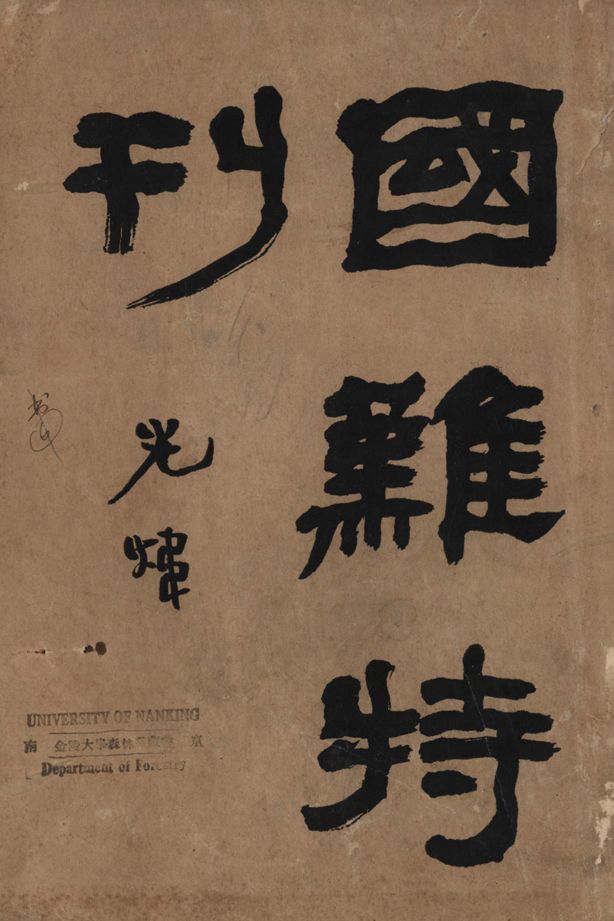 國難特
刊
光煒
UNIVERSITY OF NANKING
南 金陵大學森林 京
Department of Forestry